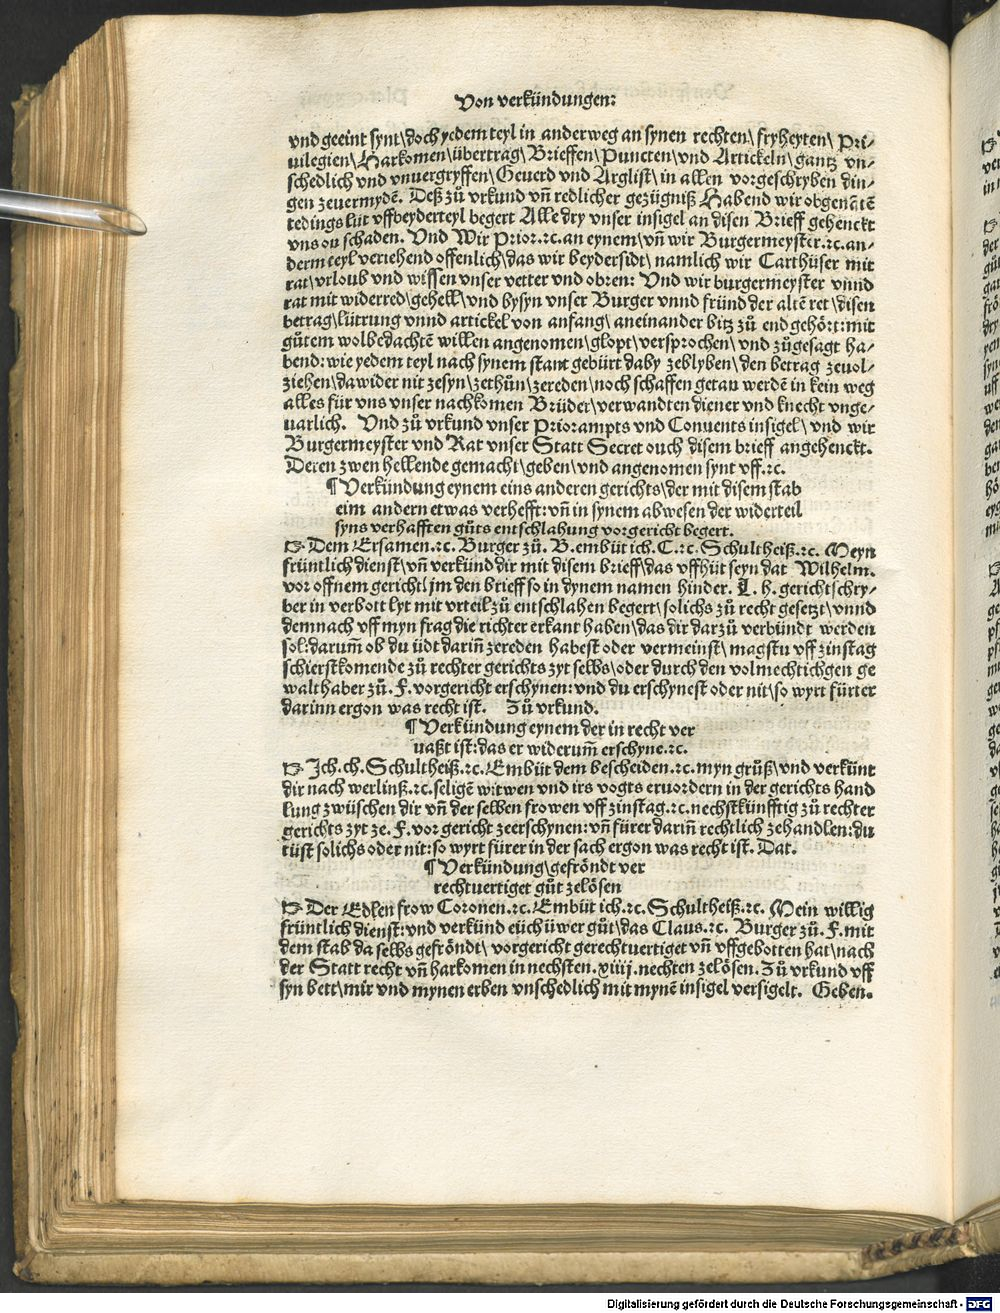 Von verkündungen:
vnd geeint synt\doch yedem teyl in ander weg an synen rechten\ fryheyten\ Pri⸗
uilegien\Harkomen\übertrag\Brieffen\Puncten\vnd Artickeln\gantz vn⸗
schedlich vnd vnuergryffen\Geuerd vnd Arglist\in allen vorgeschryben din⸗
gen zeuermydē. Deß zů vrkund vn̄ redlicher gezügniß Habend wir obgenātē
tedings lüt vff beyderteyl begert Alle dry vnser insigel an disen Brieff gehenckt
vns on schaden. Vnd Wir Prior.ꝛc.an eynem\vn̄ wir Burgermeyster.ꝛc.an⸗
derm teyl veriehend offenlich\das wir beydersidt\ namlich wir Carthüser mit
rat\vrloub vnd wissen vnser vetter vnd obren: Vnd wir burgermeyster vnnd
rat mit widerred\gehell\vnd bysyn vnser Burger vnnd fründ der altē ret\disen
betrag\lütrung vnnd artickel von anfang\ aneinander bitz zů end gehört:mit
gůtem wolbedachtē willen angenomen\glopt\versprochen\ vnd zůgesagt ha⸗
bend:wie yedem teyl nach synem stant gebürt daby zeblyben\den betrag zeuol⸗
ziehen\dawider nit zesyn\zethůn\zereden\noch schaffen getan werdē in kein weg
alles für vns vnser nachkomen Brüder\verwandten diener vnd knecht vnge⸗
uarlich. Vnd zů vrkund vnser Priorampts vnd Conuents insigel\ vnd wir
Burgermeyster vnd Rat vnser Statt Secret ouch disem brieff angehenckt.
Deren zwen hellende gemacht\geben\vnd angenomen synt vff.ꝛc.
¶ Verkündung eynem eins anderen gerichts\der mit disem stab
eim andern etwas verhefft:vn̄ in synem abwesen der widerteil
syns verhafften gůts entschlahung vorgericht begert.
☞ Dem Ersamen.ꝛc. Burger zů. B.embüt ich. C.ꝛc. Schultheiß.ꝛc. Meyn
früntlich dienst\vn̄ verkünd dir mit disem brieff\das vff hüt seyn dat Wilhelm.
vor offnem gericht\jm den brieff so in dynem namen hinder. L. h. gerichtschry⸗
ber in verbott lyt mit vrteil zů entschlahen begert\solichs zů recht gesetzt\vnnd
demnach vff myn frag die richter erkant haben\das dir darzů verkündt werden
sol:darum̄ ob du üdt darin̄ zereden habest oder vermeinst\ magstu vff zinstag
schierstkomende zů rechter gerichts zyt selbs\oder durch den volmechtichgen ge
walthaber zů. F. vorgericht erschynen:vnd du erschynest oder nit\so wyrt fürter
darinn ergon was recht ist. Zů vrkund.
¶ Verkündung eynem der in recht ver
uaßt ist:das er widerum̄ erschyne.ꝛc.
☞ Jch.ch. Schultheiß.ꝛc.Embüt dem bescheiden.ꝛc.myn grůß\vnd verkünt
dir nach werlinß.ꝛc.seligē witwen vnd irs vogts eruordern in der gerichts hand
lung zwüschen dir vn̄ der selben frowen vff zinstag.ꝛc.nechstkünfftig zů rechter
gerichts zyt ze. F. vor gericht zeerschynen:vn̄ fürer darin̄ rechtlich zehandlen:du
tüst solichs oder nit:so wyrt fürer in der sach ergon was recht ist. Dat.
¶ Verkündung\gefröndt ver
rechtuertiget gůt zelösen
☞ Der Edlen frow Coronen.ꝛc. Embüt ich.ꝛc. Schultheiß.ꝛc. Mein willig
früntlich dienst:vnd verkünd eüch üwer gůt\das Claus.ꝛc. Burger zů. F. mit
dem stab da selbs gefröndt\ vorgericht gerechtuertiget vn̄ vffgebotten hat\nach
der Statt recht vn̄ harkomen in nechsten.viiij.nechten zelösen. Zů vrkund vff
syn bett\mir vnd mynen erben vnschedlich mit mynē insigel versigelt. Geben.
Digitalisierung gefördert durch die Deutsche Forschungsgemeinschaft - DFG